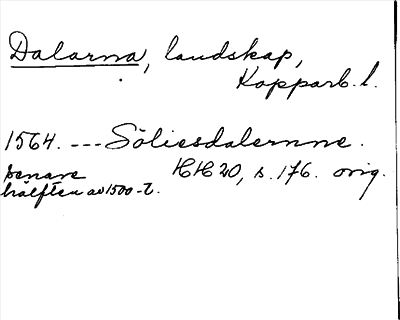 Dalarna, landskap,
Kopparb. l.
1564. --- Söliesdalernne.
senare HH 20, s. 176. orig.
hälften av 1500-t.